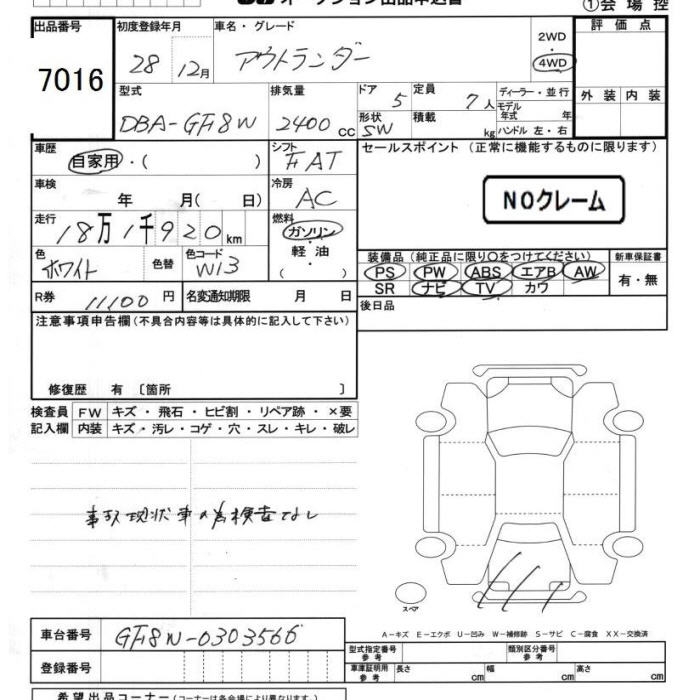 オークション出品申込書
①会場控
出品番号
7016
初度登録年月
28 12月
車名・グレード
アウトランダー
2WD
4WD
評価点
外装 内装
型式
DBA-GF8W
排気量
2400 cc
ドア 5
形状 SW
定員 7人
積載 kg
ディーラー・並行
モデル年式 年
ハンドル 左・右
車歴
自家用・( )
シフト
FAT
セールスポイント (正常に機能するものに限ります)
NOクレーム
車検
年 月( 日)
冷房
AC
走行
18万1千920km
燃料
ガソリン・
軽油
( )
色
ホワイト
色替
色コード
W13
装備品(純正品に限り○をつけてください)
PS PW ABS エアB AW
SR ナビ TV カワ
新車保証書
有・無
R券
11100円
名変通知期限 月 日
後日品
注意事項申告欄(不具合内容等は具体的に記入して下さい)
修復歴 有〔箇所 〕
検査員 FW キズ・飛石・ヒビ割・リペア跡・×要
記入欄 内装 キズ・汚レ・コゲ・穴・スレ・キレ・破レ
事故現状車の為検査なし
スペア
A-キズ E-エクボ U-凹み W-補修跡 S-サビ C-腐食 XX-交換済
車台番号
GF8W-0303566
登録番号
型式指定番号
参考
類別区分番号
参考
車庫証明用
参考
長さ cm 幅 cm 高さ cm
希望出品コーナー(コーナーは各会場により異なります。)